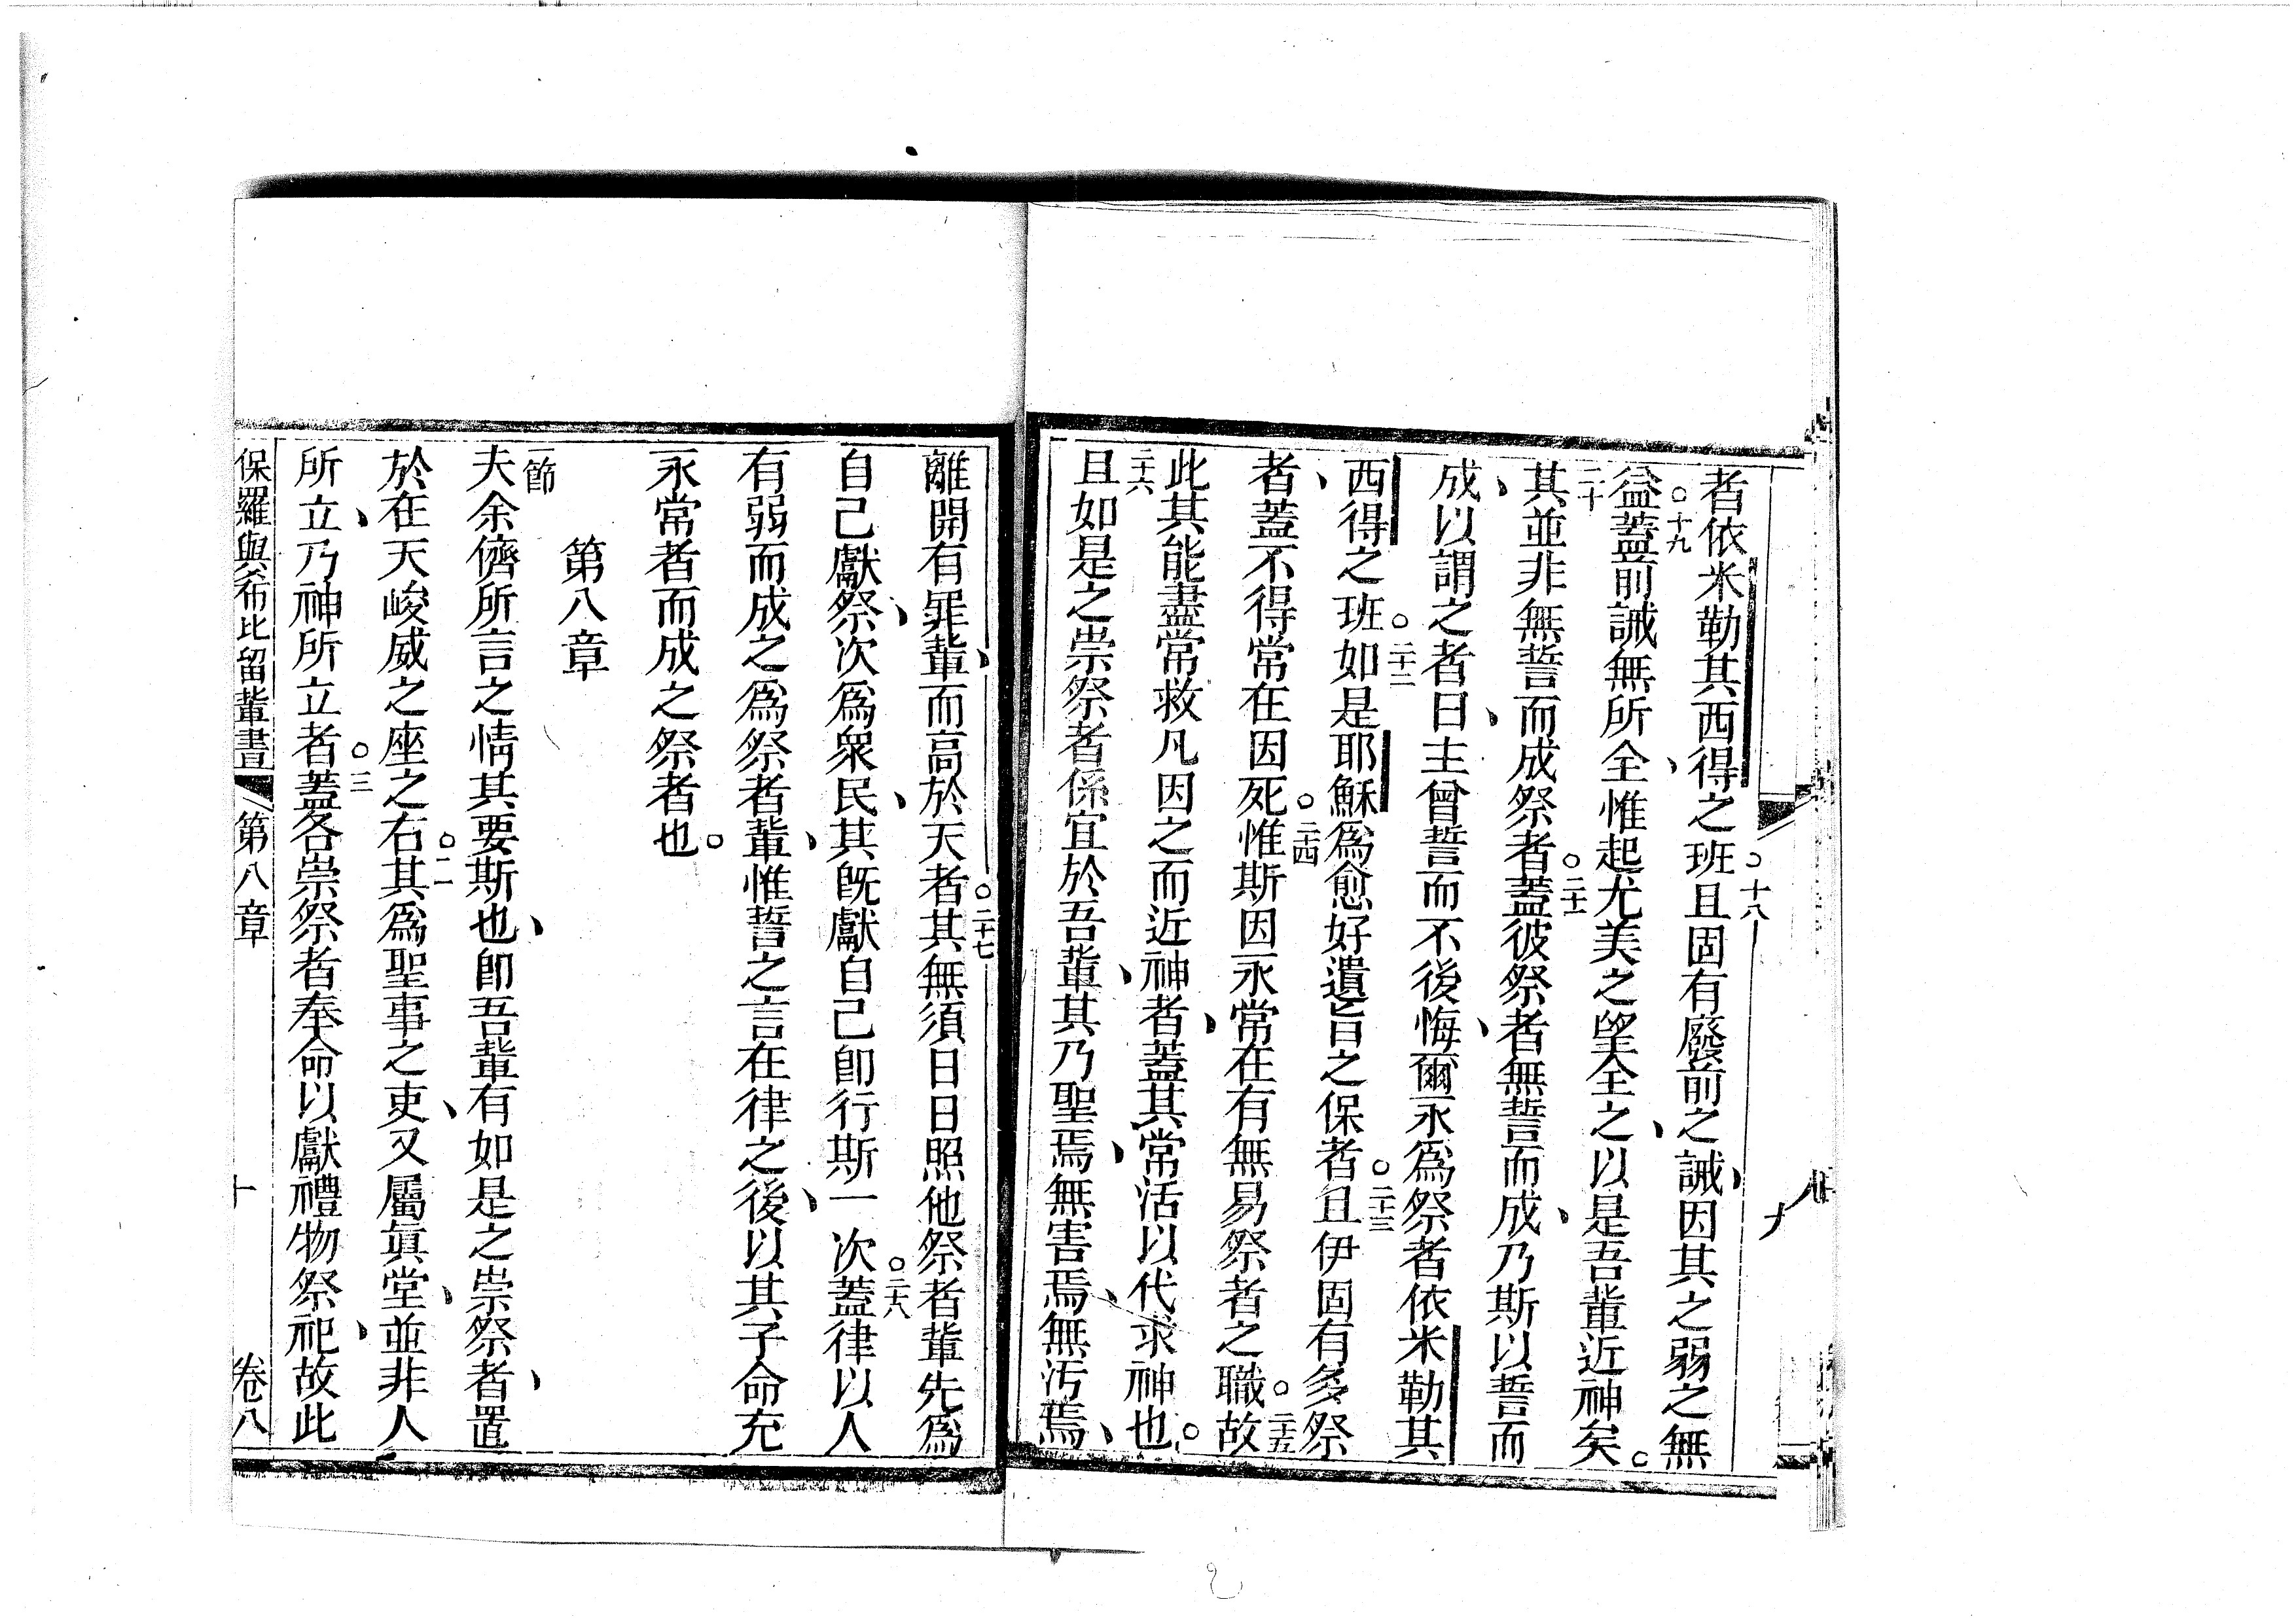 者依米勒其西得之班○十八且固有廢前之誡、因其之弱之無
益○十九蓋前誡無所全、惟起尤美之望全之、以是吾輩近神矣。
二十其並非無誓而成祭者○二十一蓋彼祭者無誓而成、乃斯以誓而
成、以謂之者曰、主曾誓而不後悔、爾永爲祭者依米勒其
西得之班○二十二如是耶穌爲愈好遺旨之保者○二十三且伊固有多祭
者、蓋不得常在因死○二十四惟斯因永常在有無易祭者之職○二十五故
此其能盡常救凡因之而近神者、蓋其常活以代求神也。
二十六且如是之崇祭者係宜於吾輩、其乃聖焉、無害焉、無汚焉、
離開有罪輩、而高於天者○二十七其無須日日照他祭者輩先爲
自己獻祭、次爲衆民、其旣獻自己卽行斯一次○二十八蓋律以人
有弱而成之爲祭者輩、惟誓之言在律之後、以其子命充
永常者而成之祭者也。
第八章
一節夫余儕所言之情其要斯也、卽吾輩有如是之崇祭者、置
於在天峻威之座之右○二其爲聖事之吏、又屬眞堂、並非人
所立、乃神所立者○三蓋各崇祭者奉命以獻禮物祭祀、故此
保羅與希比留輩書 第八章 十 卷八